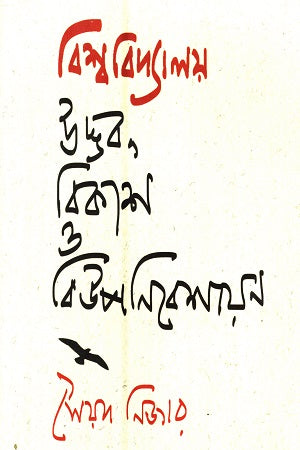 বিশ্ববিদ্যালয়
উদ্ভব,
বিকাশ
ও
বিউপনিবেশায়ন
সৈয়দ নিজার